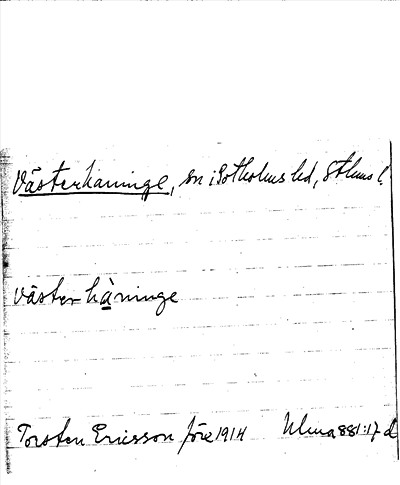 Västerhaninge, sn i Sotholms hd, Sthms l.
väster hàninge
Torsten Ericsson före 1914 Ulma 881:17 d